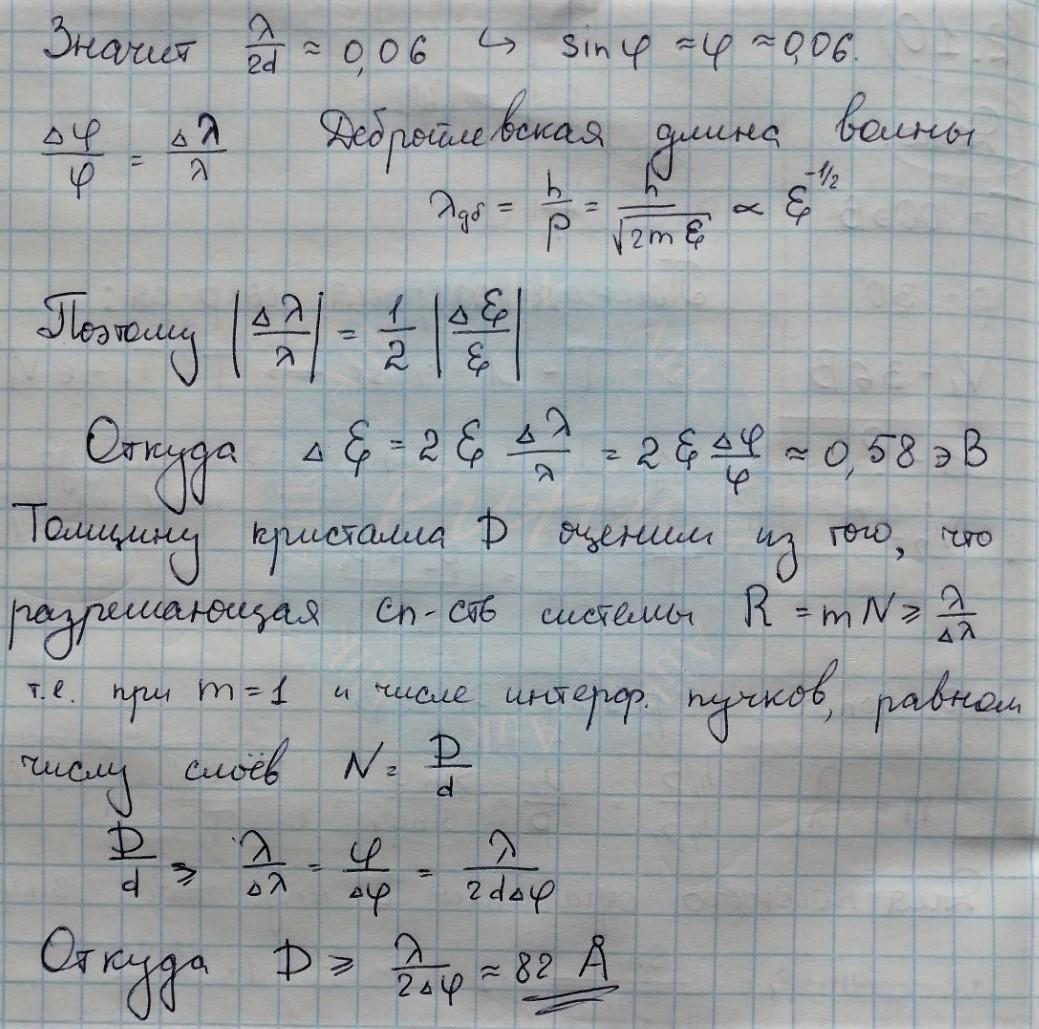 Значит λ/2d ≈ 0,06 ↪ sin φ ≈ φ ≈ 0,06.
Δφ/φ = Δλ/λ Дебройлевская длина волны
λдб = h/p = h/√(2mℰ) ∝ ℰ^(-1/2)
Поэтому |Δλ/λ| = 1/2 |Δℰ/ℰ|
Откуда Δℰ = 2ℰ Δλ/λ = 2ℰ Δφ/φ ≈ 0,58 эВ
Толщину кристалла D оценим из того, что
разрешающая сп-ств системы R = mN ≥ λ/Δλ
т.е. при m=1 и числе интерф. пучков, равном
числу слоёв N = D/d
D/d ≥ λ/Δλ = φ/Δφ = λ/2dΔφ
Откуда D ≥ λ/2Δφ ≈ 82 Å